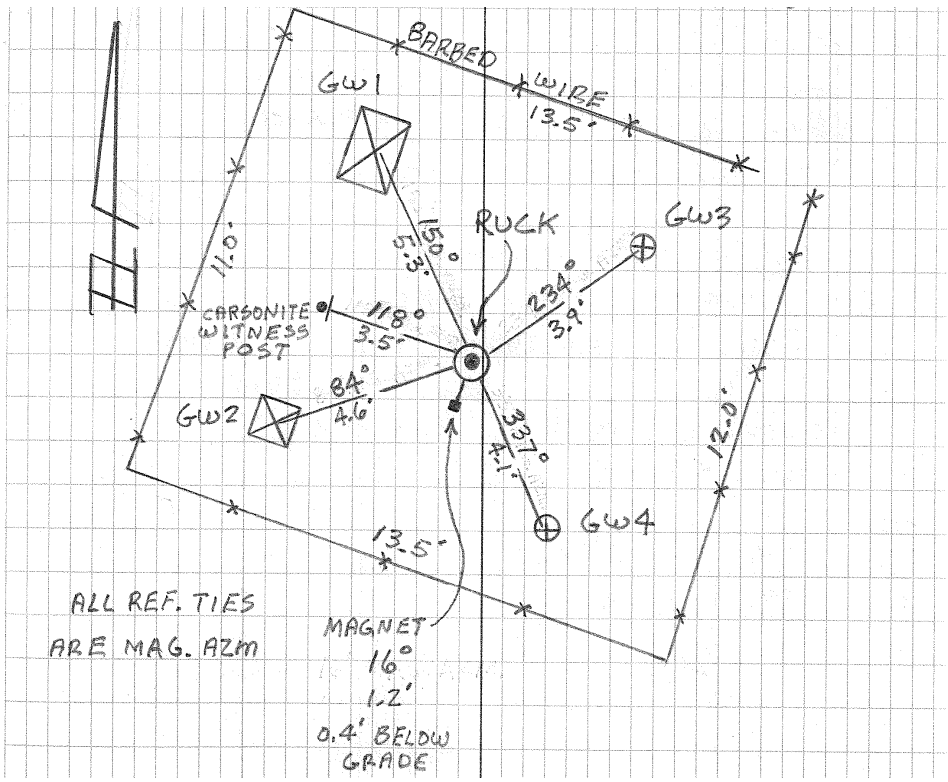 BARBED
WIRE
13.5'
GW1
RUCK
GW3
150°
5.3'
11.0'
234°
3.9'
CARSONITE
WITNESS
POST
118°
3.5'
84°
4.6'
GW2
337°
4.1'
12.0'
GW4
13.5'
ALL REF. TIES
ARE MAG. AZM
MAGNET
16°
1.2'
0.4' BELOW
GRADE